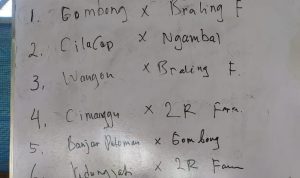 1. Gombong x Braling F
2. Cilacap x Ngambal
3. Wangon x Braling F.
4. Cimanggu x 2R Farm.
5. Banjar Patoman x Gombong
x 2R Farm